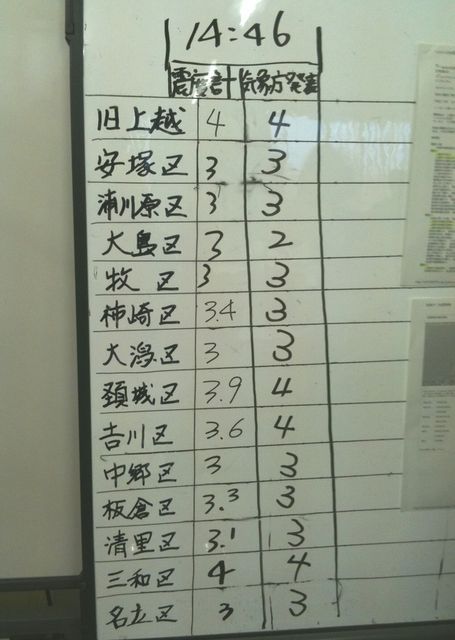 14:46
震度計 気象庁発表
旧上越 4 4
安塚区 3 3
浦川原区 3 3
大島区 3 2
牧 区 3 3
柿崎区 3.4 3
大潟区 3 3
頚城区 3.9 4
吉川区 3.6 4
中郷区 3 3
板倉区 3.3 3
清里区 3.1 3
三和区 4 4
名立区 3 3